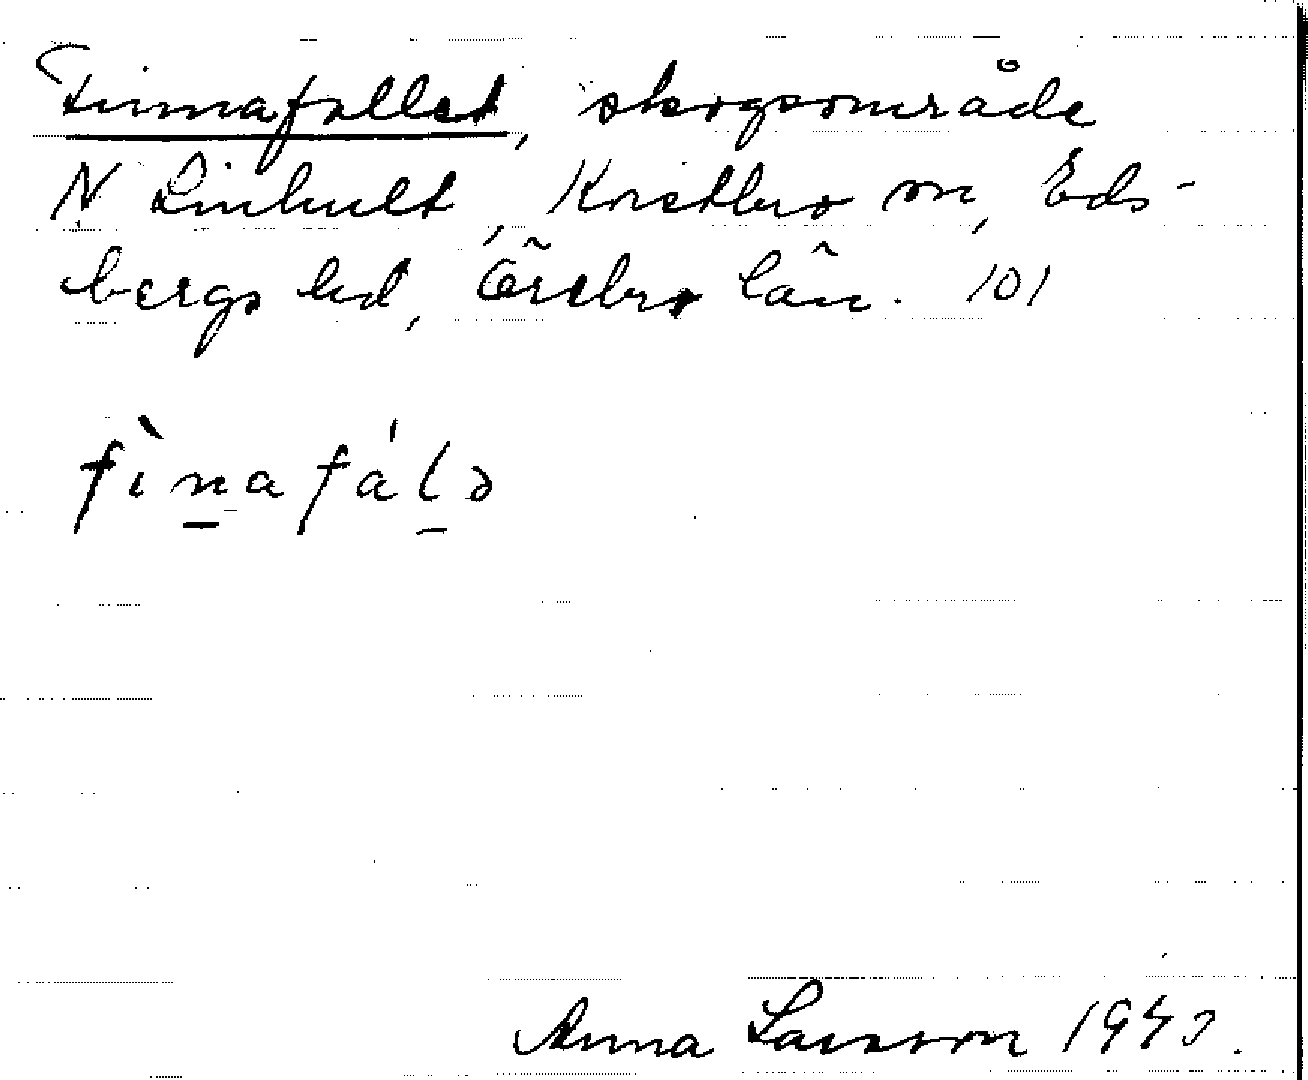 Finnafallet, skogsområde
N Linhult, Kvistbro sn, Eds-
bergs hd, Örebro län. 101
fìnafálə
Anna Larsson